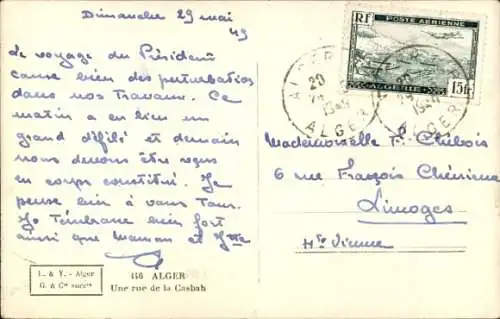 Dimanche 29 mai
49
Le voyage du Président
cause bien des perturbations
dans nos travaux. Ce
matin a eu lieu un
grand défilé et demain
nous devons être reçus
en corps constitué. Je
pense bien à vous tous.
Je t'embrasse bien fort
ainsi que Maman et
L. & Y. - Alger
G. & Cie succrs
446 ALGER
Une rue de la Casbah
RF
POSTE AÉRIENNE
ALGÉRIE
15fr
ALGER
1949
ALGER
ALGER
Mademoiselle F. Chibois
6 rue François Chénieux
Limoges
Hte Vienne